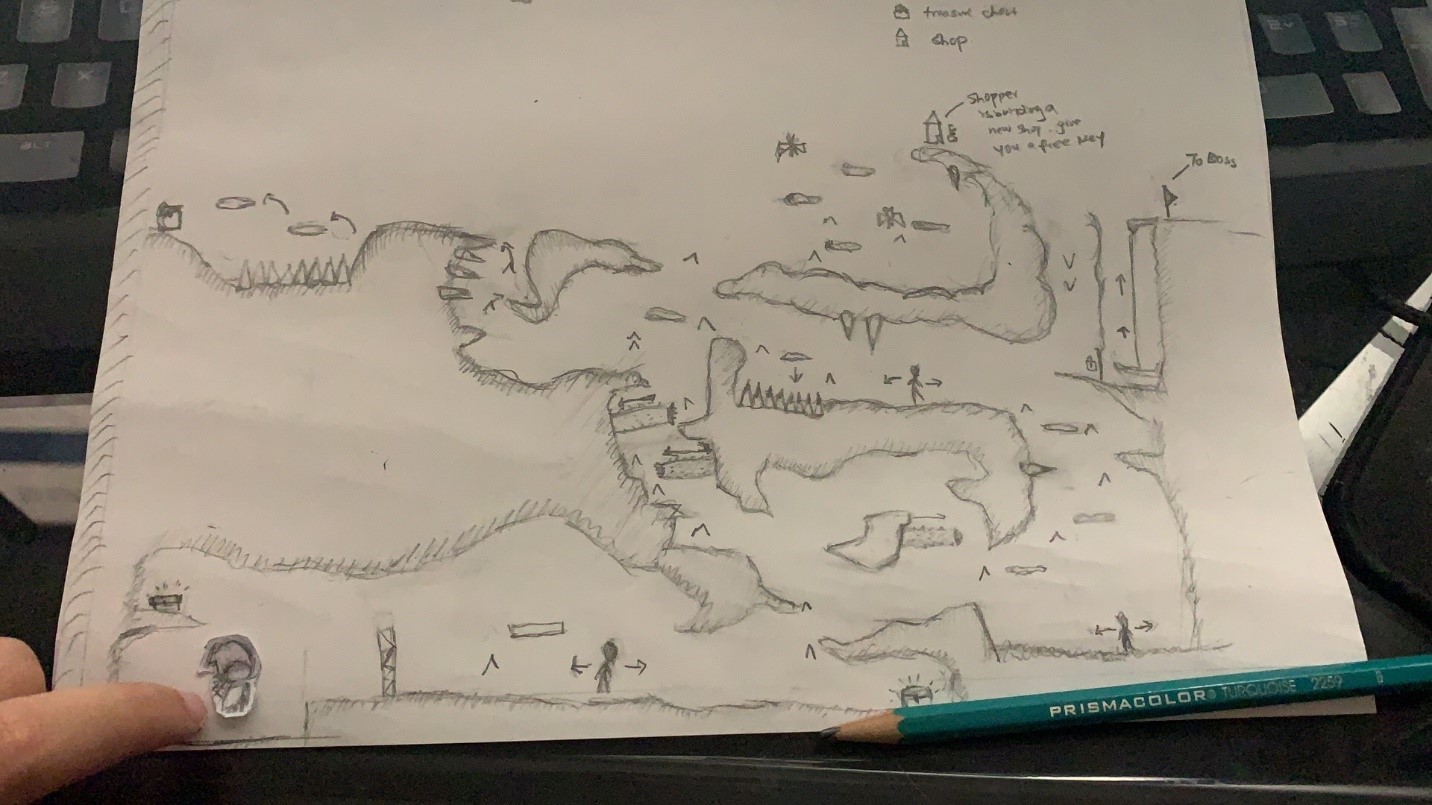 treasure chest
shop
Shopper
is building a
new shop. give
you a free key
To Boss
PRISMACOLOR® TURQUOISE 2259 B
ALT
X